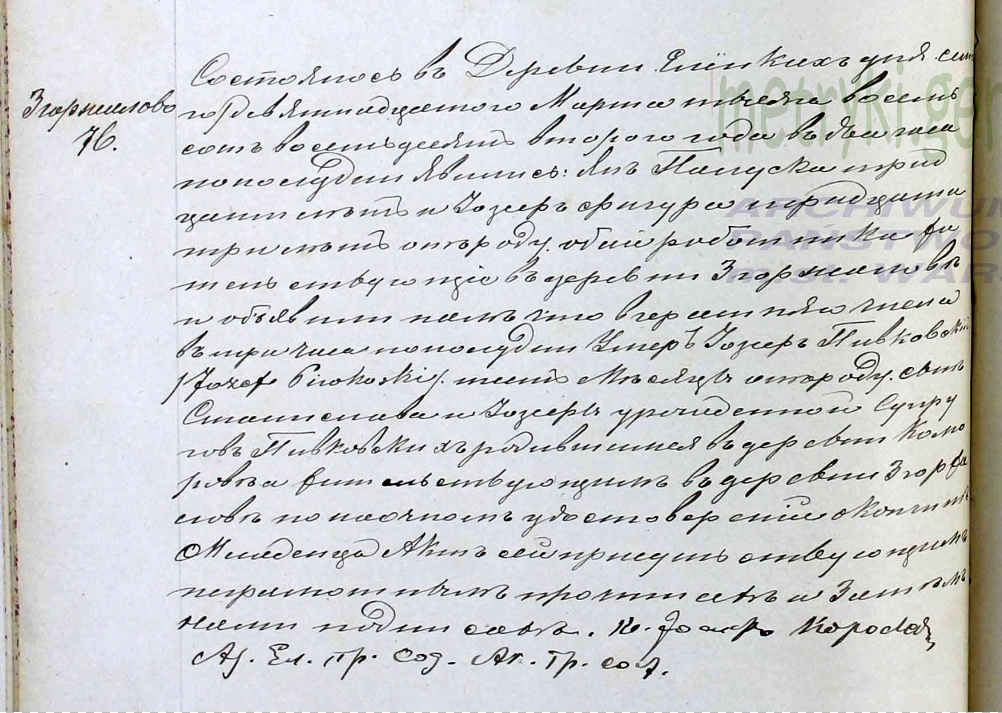 Згоржалово
76.
Состоялось въ Деревни Еленкихъ дня семь
го/девятнадцатого Марта тысяча восемь
сотъ восемьдесятъ второго года въ два часа
пополудни явились: Янъ Папуска трид
цати лѣтъ и Іозефъ Фигура тридцати
три лѣтъ отъ роду, обаи работники жи
тельствующіе въ деревни Згоржаловѣ
и объявили намъ что вчерашняго числа
въ три часа пополудни Умеръ Іозефъ Пивковскій
/Józef Piwkoski/. шесть Мѣсяцъ отъ роду. сынъ
Станислава и Іозефы урожденной Супру
говъ Пивковскихъ родившийся въ деревни Комо
ровѣ а жительствующимъ въ деревни Згоржа
ловѣ по наочномъ удостовереніи окончинѣ
Младенца Актъ сей присутствующимъ
неграмотнымъ прочитанъ и Затѣмъ
нами подписанъ. К. Іозефъ
Ад. Ел. Пр. Сод. Ак. Гр. сос.
metryki.gen
ARCHIWUM
PAŃSTWO
m.st. WAR